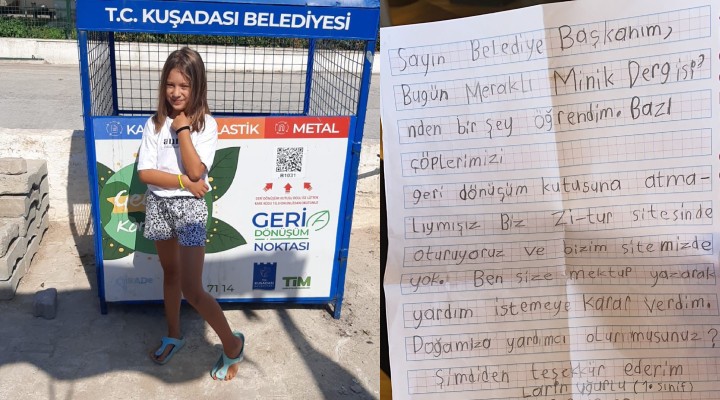 T.C. KUŞADASI BELEDİYESİ
LASTİK
METAL
R1031
GERİ
DÖNÜŞÜM
NOKTASI
KUŞADASI
TİM
71 14
Sayın Belediye Başkanım,
Bugün Meraklı Minik Dergisi?
nden bir şey öğrendim. Bazı
çöplerimizi
geri dönüşüm kutusuna atma-
lıymışız Biz Zi-tur sitesinde
oturuyoruz ve bizim sitemizde
yok. Ben size mektup yazarak
yardım istemeye karar verdim.
Doğamıza yardımcı olurmusunuz?
Şimdiden teşekkür ederim
Larin Uğurlu (1. sınıf)